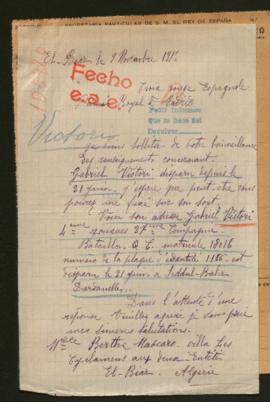 SECRETARIA PARTICULAR DE S. M. EL REY DE ESPAÑA
El Biar le 9 Novembre 191
Fecho
e.a.e.
Croix rouge Espagnole
Royal à Madrid
Pedir informes
que se hace del
Devolver
Victorio
Je viens solliciter de votre bienveillance
des renseignements concernant
Gabriel Victori disparu depuis le
21 Juin, j'espère que peut être vous
pourrez me fixer sur son sort.
Voici son adresse Gabriel Victori
4ème zouaves 27ème Compagnie
Bataillon matricule 18116
numéro de la plaque d'identité 1185. est
disparu le 21 Juin à Seddul-Bahr
Dardanelles
Dans l'attente d'une
réponse Veuillez agréer je vous prie
mes sincères salutations.
Melle Berthe Mascaro. villa Les
aux deux Entêtés
El-Biar. Algérie